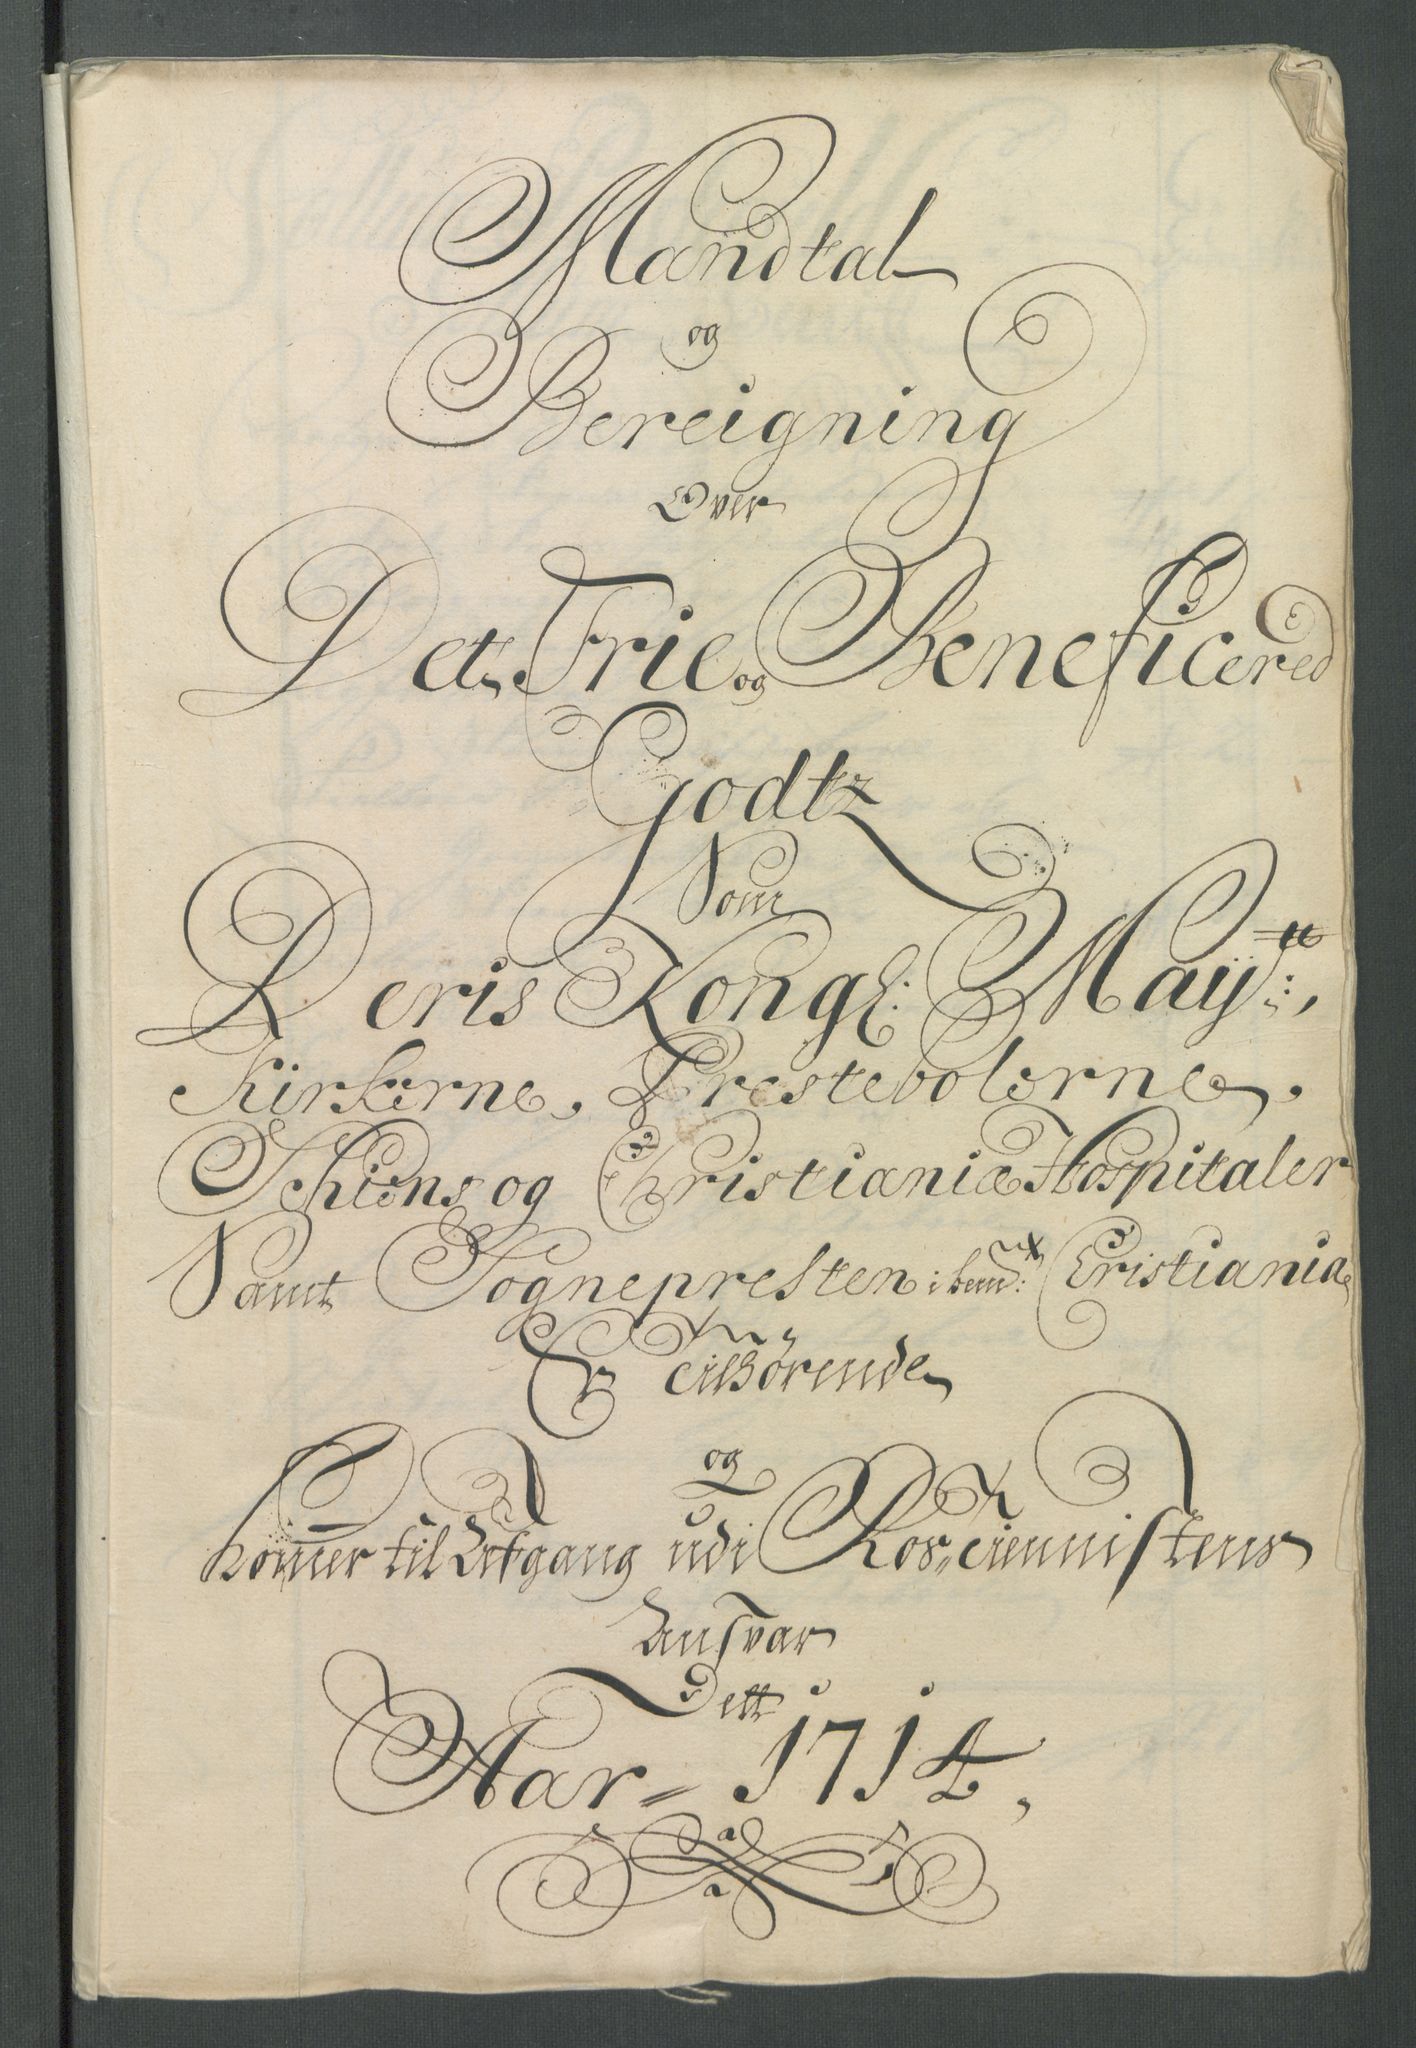 Mandtal
og
Bereigning
Over
Det Frie og Beneficered
Godtz
Som
Deris Kongl: Maÿtt:,
Kirkerne, Prestebolerne,
Schiens og Christianiæ Hospitaler
Samt Sognepresten i bem: Cristiania
Er tilhørende
og
kom̅er til Afgang udi Ros,, tienistens
Ansvar
Dett
Aar 1714,